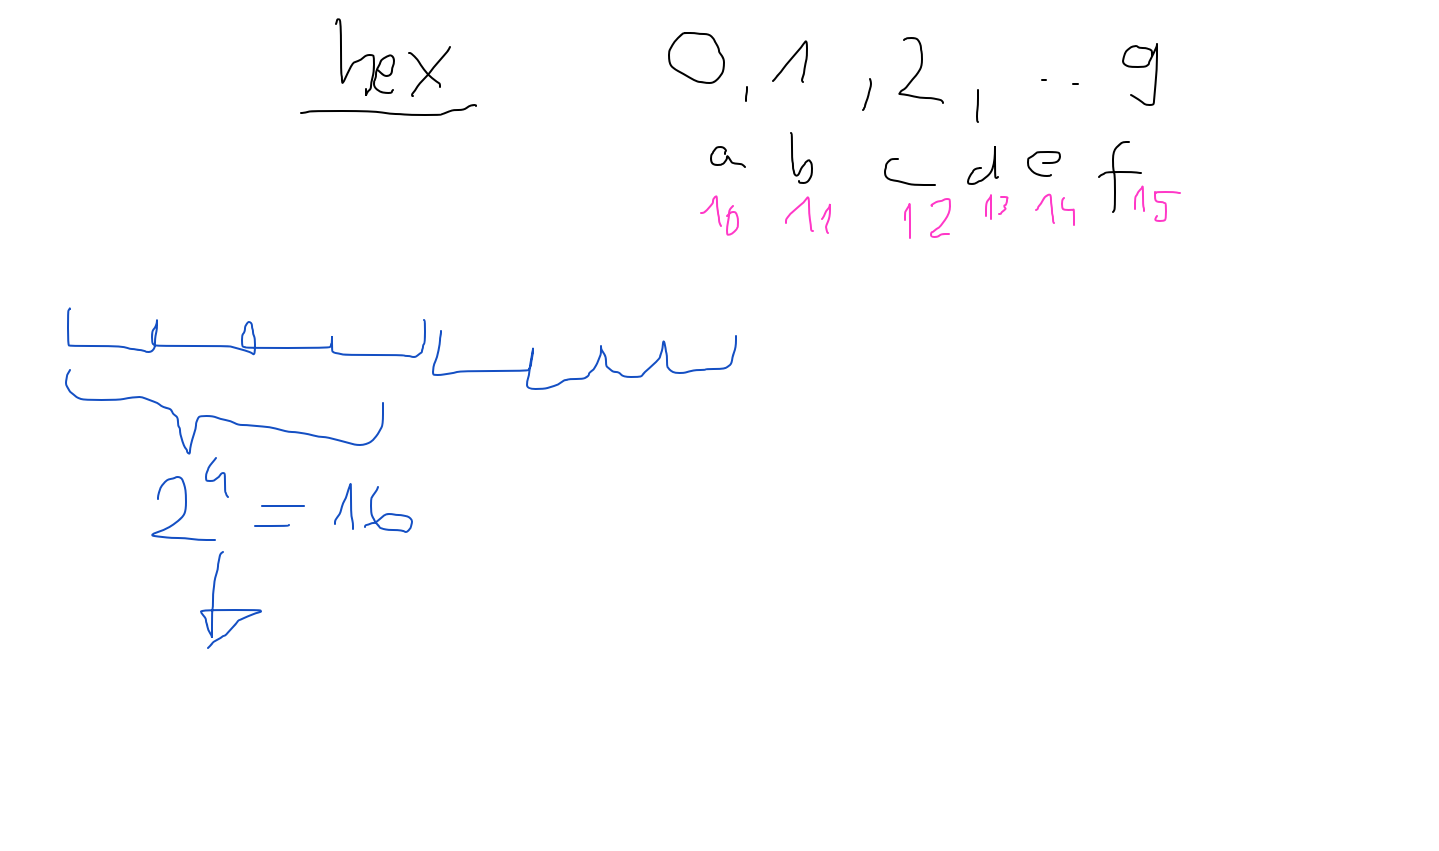 hex 0, 1, 2, .. 9
a b c d e f
10 11 12 13 14 15
2⁴ = 16